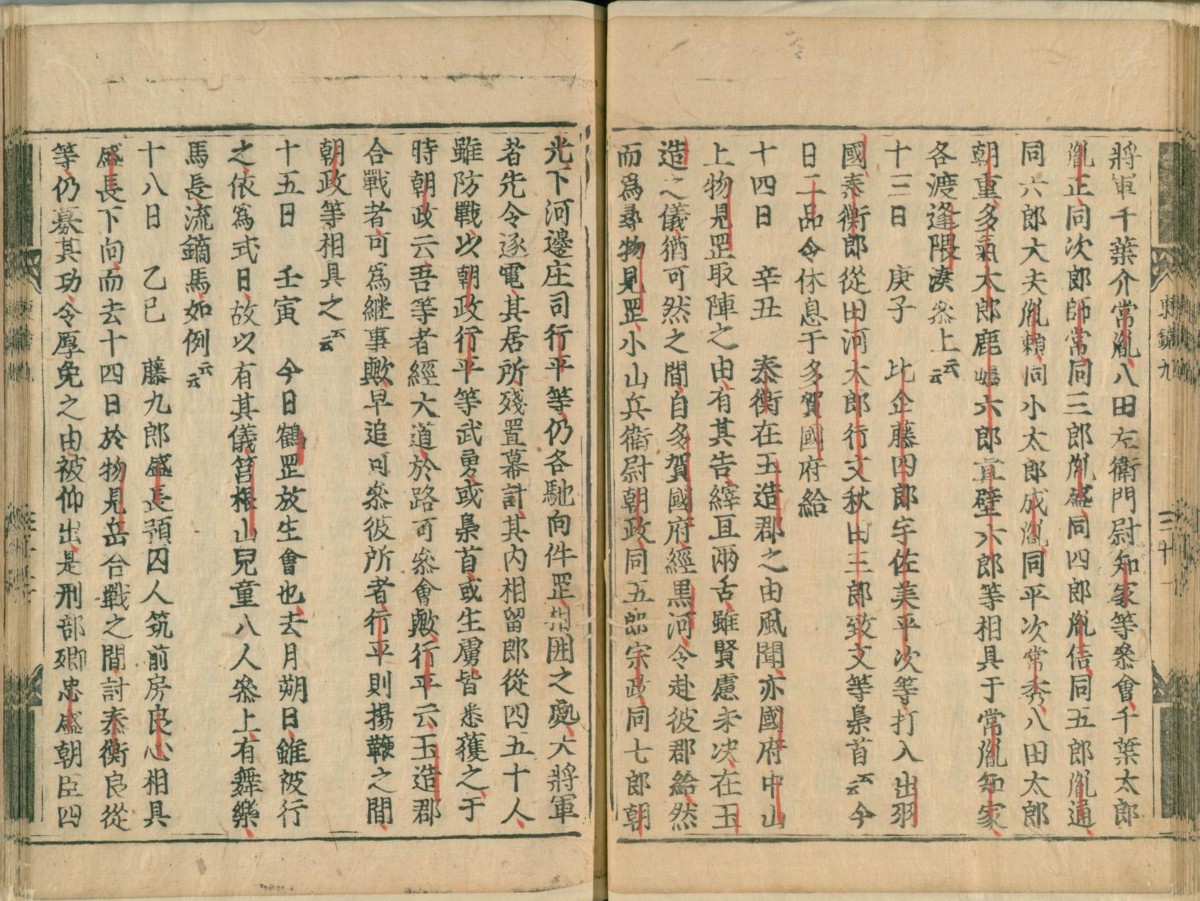 將軍千葉介常胤八田左衛門尉知家等參會千葉太郎
胤正同次郎師常同三郎胤盛同四郎胤信同五郎胤通
同六郎大夫胤頼同小太郎成胤同平次常秀八田太郎
朝重多氣太郎鹿嶋六郎真壁六郎等相具于常胤知家
各渡逢隈湊參上云云
十三日　庚子　比企藤四郎宇佐美平次等打入出羽
國泰衡郎從田河太郎行文秋田三郎致文等梟首云云今
日二品令休息于多賀國府給
十四日　辛丑　泰衡在玉造郡之由風聞亦國府中山
上物見罡取陣之由有其告縡亘兩舌雖賢慮未决在玉
造之儀猶可然之間自多賀國府經黒河令赴彼郡給然
而爲尋物見罡小山兵衛尉朝政同五郎宗政同七郎朝
光下河邊庄司行平等仍各馳向件罡相囲之處大將軍
者先令逐電其居所殘置幕計其内相留郎從四五十人
雖防戰以朝政行平等武勇或梟首或生虜皆悉獲之于
時朝政云吾等者經大道於路可參會歟行平云玉造郡
合戰者可爲継事歟早追可參彼所者行平則揚鞭之間
朝政等相具之云云
十五日　壬寅　今日鶴罡放生會也去月朔日雖被行
之依爲式日故以有其儀筥根山兒童八人參上有舞樂
馬長流鏑馬如例云云
十八日　乙巳　藤九郎盛長預囚人筑前房良心相具
盛長下向而去十四日於物見岳合戰之間討泰衡良從
等仍募其功令厚免之由被仰出是刑部卿忠盛朝臣四
東鏡九
三十一